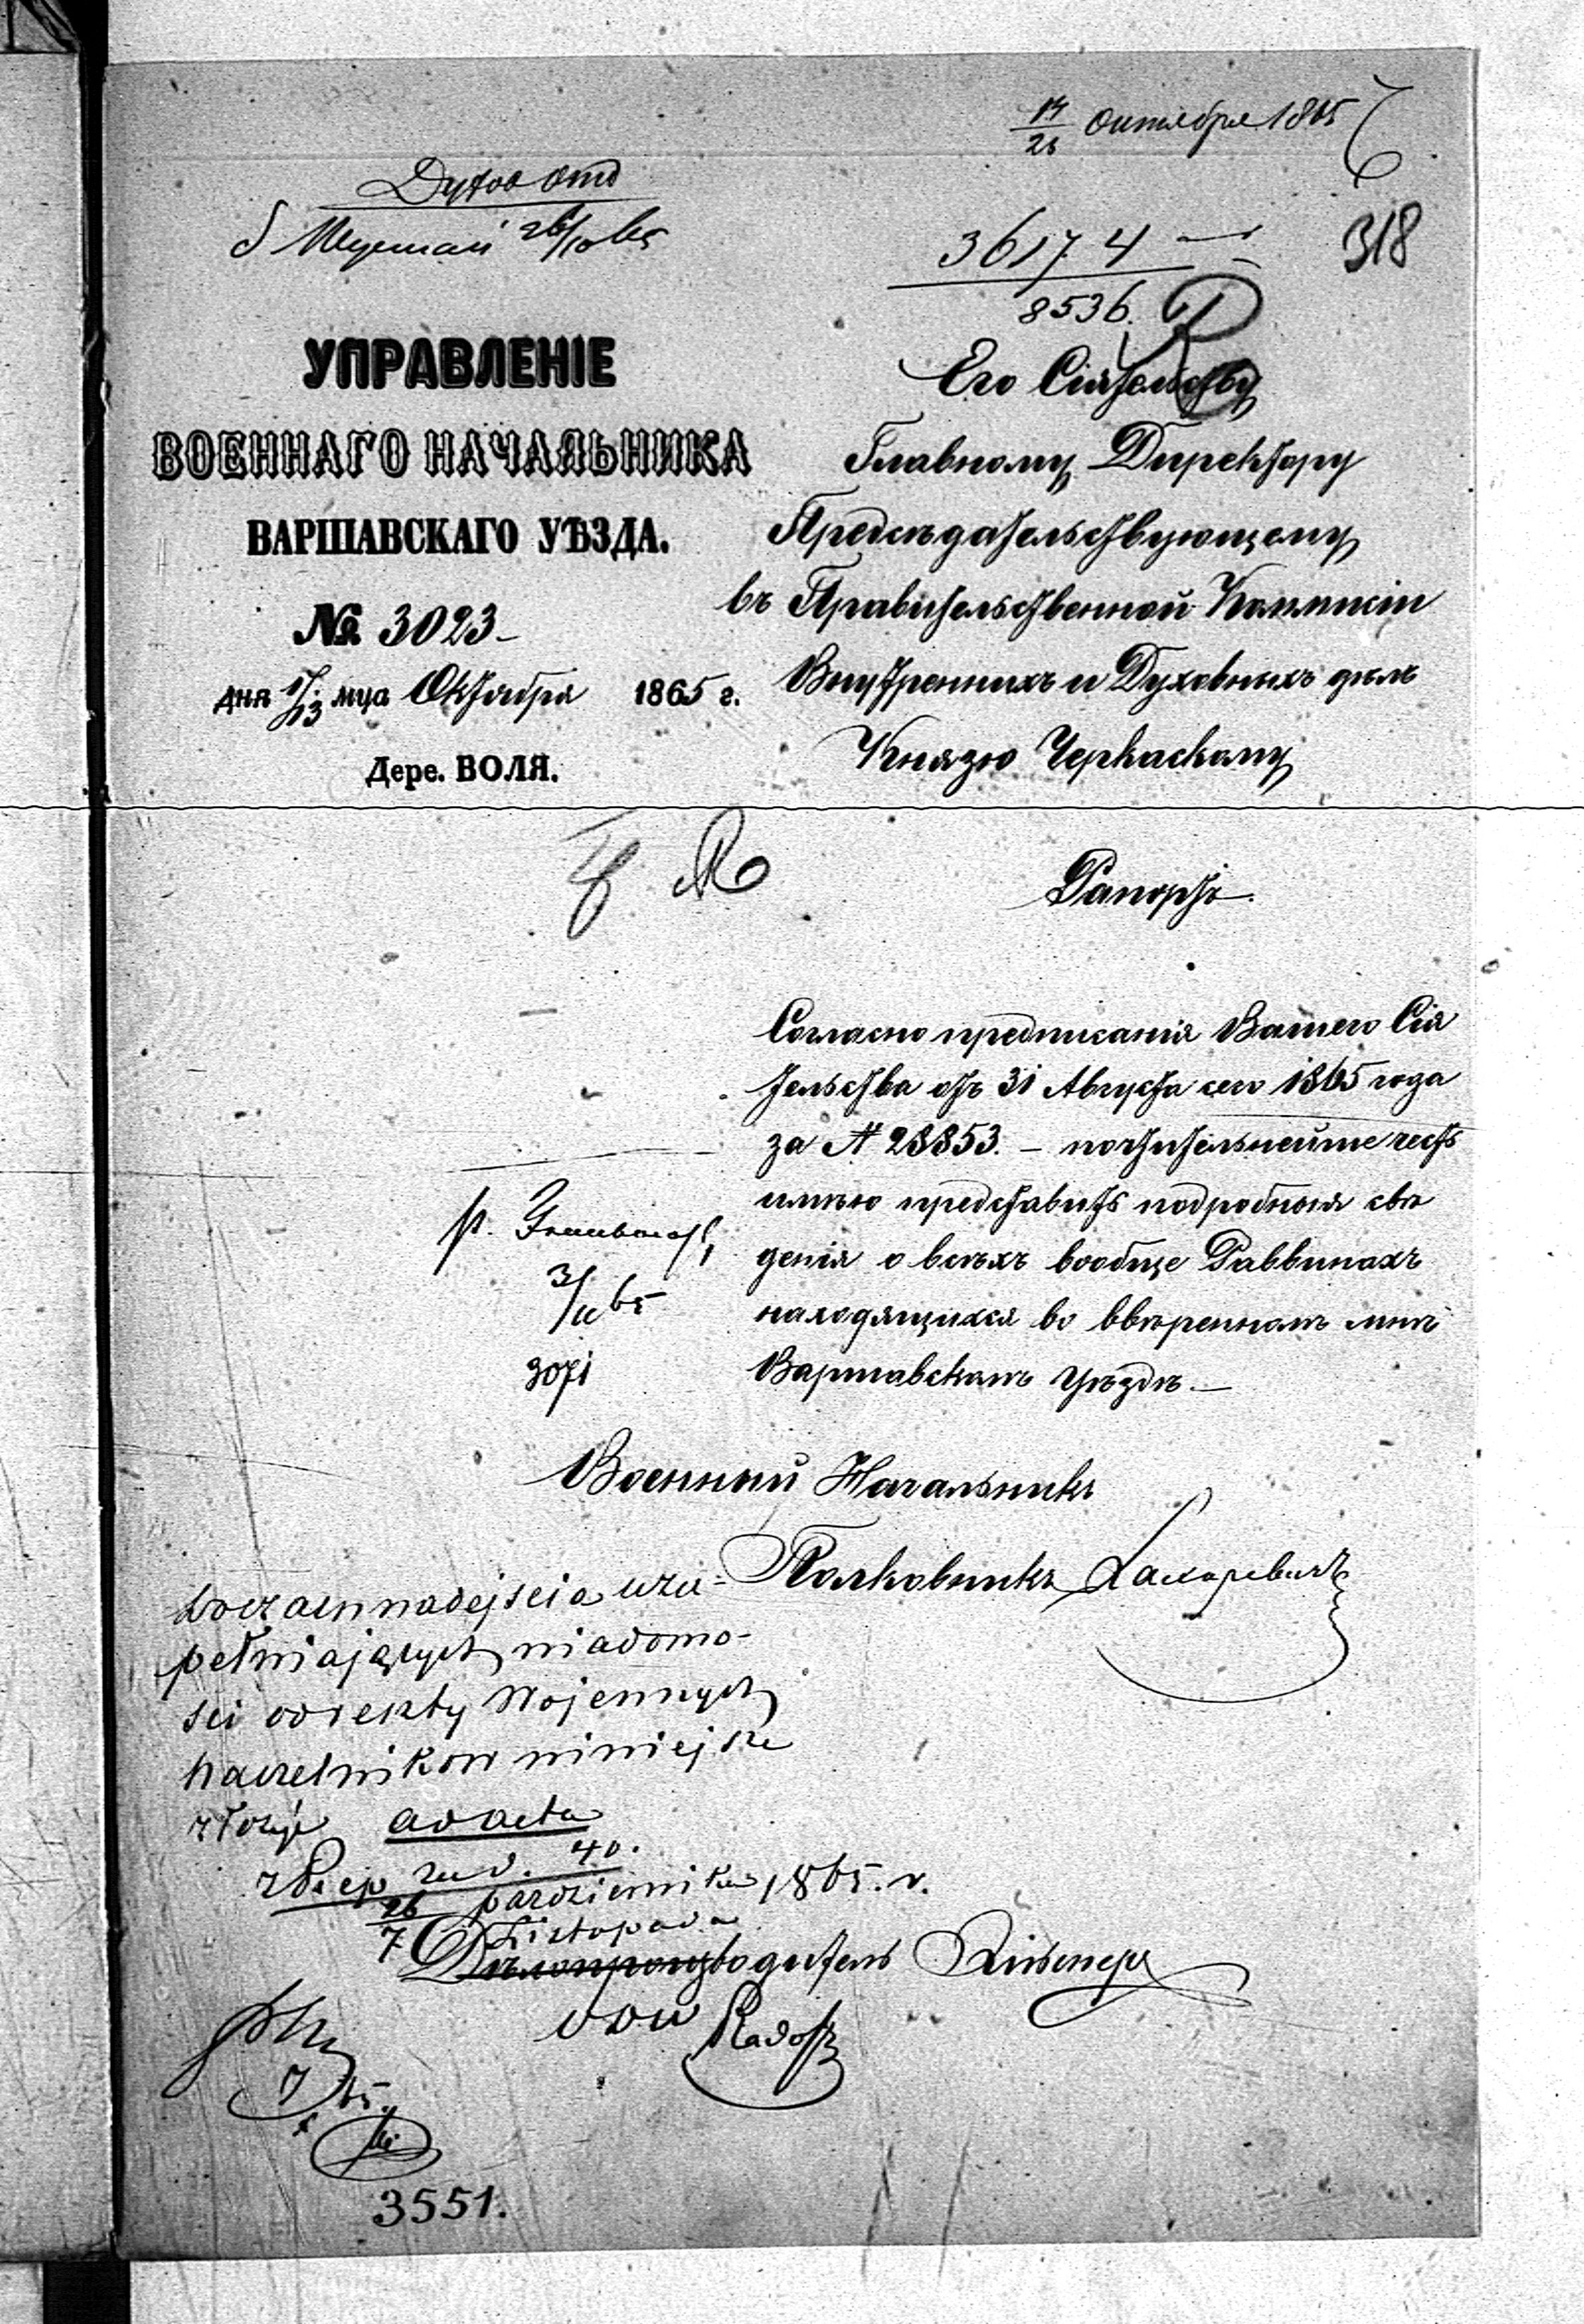 14/26 Октября 1865
318
Духов отд
26/10 65
36174
8536.
УПРАВЛЕНІЕ
ВОЕННАГО НАЧАЛЬНИКА
ВАРШАВСКАГО УѢЗДА.
№ 3023
дня 1/13 мца Октября 1865 г.
Дере. ВОЛЯ.
Его Сіятельству
Главному Директору
Предсѣдательствующему
въ Правительственной Коммисіи
Внутреннихъ и Духовныхъ дѣлъ
Князю Черкаскому
Рапортъ.
Согласно предписанія Вашего Сія
тельства отъ 31 Августа сего 1865 года
за № 28853. – почтительнейше честь
имѣю представить подробныя свѣ
денія о всѣхъ вообще Раввинахъ
находящихся во ввѣренномъ мнѣ
Варшавскомъ Уѣздѣ. –
p.
3/11 65
3071
Военный Начальникъ
Полковникъ
W oczekiwaniu nadejścia uzu-
pełniających wiadomo-
ści od reszty Wojennych
Naczelników niniejsze
złożyć ad acta
26 października 1865. r.
7 Listopada
Дѣлопроизводитель
Radosz
7
65.
3551.